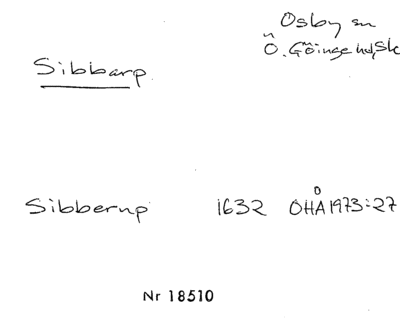 Osby sn
Ö. Göinge hd, Sk
Sibbarp
Sibberup 1632 OHÅ 1973:27
Nr 18510